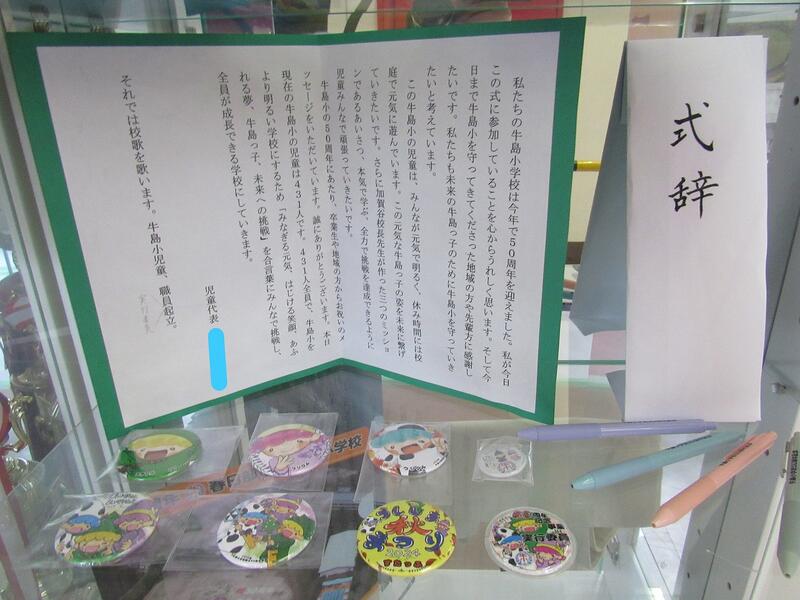 私たちの牛島小学校は今年で50周年を迎えました。私が今日
この式に参加していることを心からうれしく思います。そして今
日まで牛島小を守ってきてくださった地域の方や先輩方に感謝し
たいです。私たちも未来の牛島っ子のために牛島小を守っていき
たいと考えています。
この牛島小の児童は、みんなが元気で明るく、休み時間には校
庭で元気に遊んでいます。この元気な牛島っ子の姿を未来に繋げ
ていきたいです。さらに加賀谷校長先生が作った三つのミッショ
ンであるあいさつ、本気で学ぶ、全力で挑戦を達成できるように
児童みんなで頑張っていきたいです。
牛島小の50周年にあたり、卒業生や地域の方からお祝いのメ
ッセージをいただいています。誠にありがとうございます。本日
現在の牛島小の児童は431人です。431人全員で、牛島小を
より明るい学校にするため「みなぎる元気、はじける笑顔、あふ
れる夢、牛島っ子、未来への挑戦」を合言葉にみんなで挑戦し、
全員が成長できる学校にしていきます。
児童代表
それでは校歌を歌います。牛島小児童、職員起立。
式辞
小学校
うしじま
秋
まつり
2024
すたっふ
実行委員